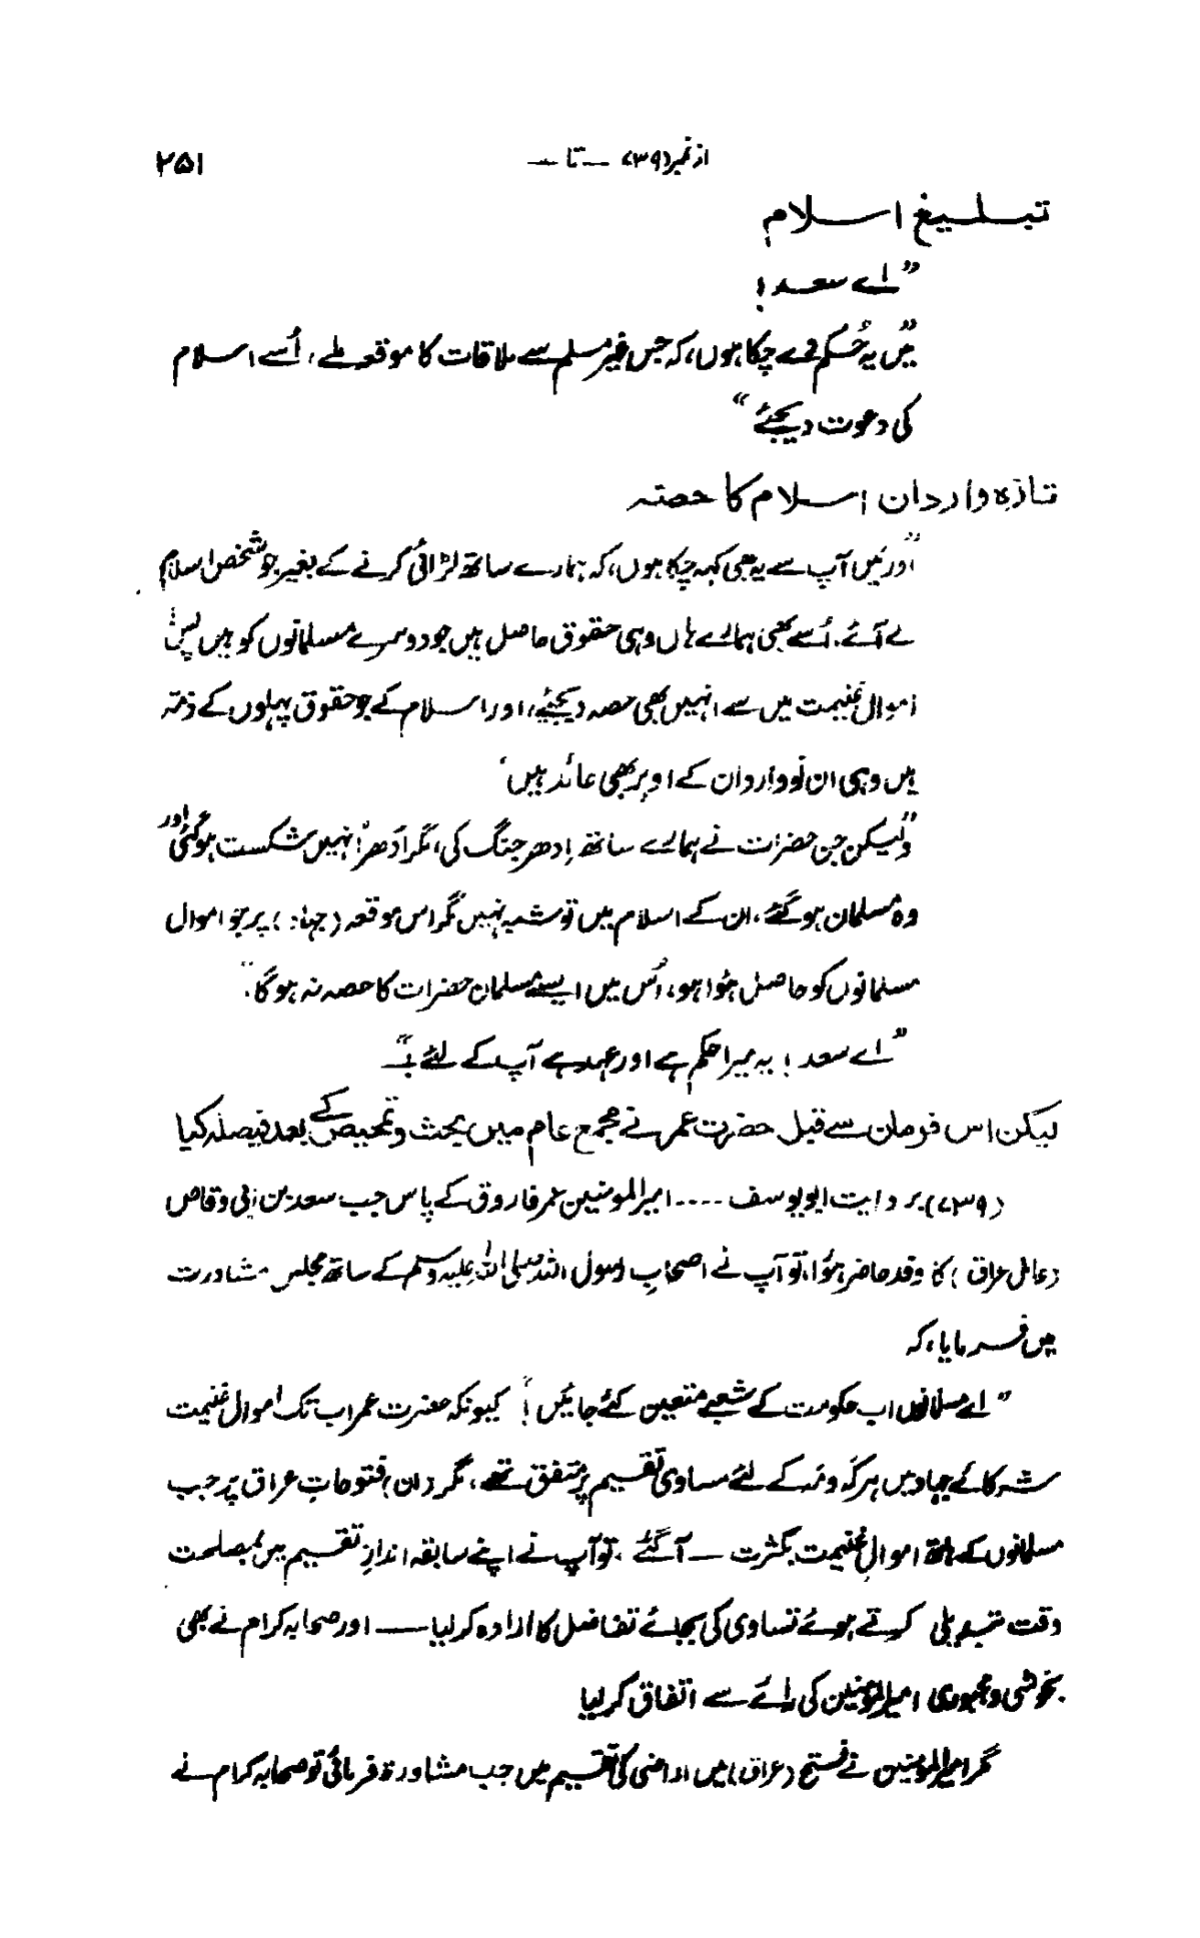 از نمبر (۷۳۹) — تا — ۲۵۱
تبلیغ اسلام
”اے سعد!
”میں یہ حُکم دے چکا ہوں، کہ جس غیر مسلم سے ملاقات کا موقعہ ملے، اُسے اسلام
کی دعوت دیجئے“
تازہ واردان اسلام کا حصتہ
”اور میں آپ سے یہ بھی کہہ چکا ہوں، کہ ہمارے ساتھ لڑائی کرنے کے بغیر جو شخص اسلام
لے آئے، اُسے بھی ہمارے ہاں وہی حقوق حاصل ہیں جو دوسرے مسلمانوں کو ہیں پس
اموال غنیمت میں سے انہیں بھی حصہ دیجئے، اور اسلام کے جو حقوق پہلوں کے ذمتہ
ہیں وہی ان نو واردان کے اوپر بھی عائد ہیں‘
”لیکن جن حضرات نے ہمارے ساتھ اِدھر جنگ کی، مگر اُدھر انہیں شکست ہوگئی اور
وہ مسلمان ہو گئے، ان کے اسلام میں تو شبہ نہیں مگر اس موقعہ (جہاد) پر جو اموال
مسلمانوں کو حاصل ہُوا ہو، اُس میں ایسے مسلمان حضرات کا حصہ نہ ہو گا“۔
”اے سعد! یہ میرا حکم ہے اور عہد ہے آپ کے لئے“
لیکن اس فرمان سے قبل حضرت عمر نے مجمع عام میں بحث و تمحیص کے بعد فیصلہ کیا
(۷۳۹) بروایت ابو یوسف .... امیر المومنین عمر فاروق کے پاس جب سعد بن ابی وقاص
(عامل عراق) کا وفد حاضر ہُوا، تو آپ نے اصحابِ رسول اللہ صلی اللہ علیہ وسلم کے ساتھ مجلس مشاورت
میں فرمایا، کہ
”اے مسلمانوں اب حکومت کے شعبے متعین کئے جائیں! کیونکہ حضرت عمر اب تک اموال غنیمت
شرکائے جہاد میں ہر کہ ومہ کے لئے مساوی تقسیم پر متفق تھے، مگر (ان) فتوحاتِ عراق پر جب
مسلمانوں کے ہاتھ اموالِ غنیمت بکثرت — آ گئے، تو آپ نے اپنے سابقہ اندازِ تقسیم میں بمصلحت
وقت تبدیلی کرتے ہوئے تساوی کی بجائے تفاضل کا ارادہ کر لیا — اور صحابہ کرام نے بھی
بخوشی و مجبوری امیر المومنین کی رائے سے اتفاق کر لیا
مگر امیر المومنین نے فتح (عراق) میں اراضی کی تقسیم میں جب مشاورۃ فرمائی تو صحابہ کرام نے